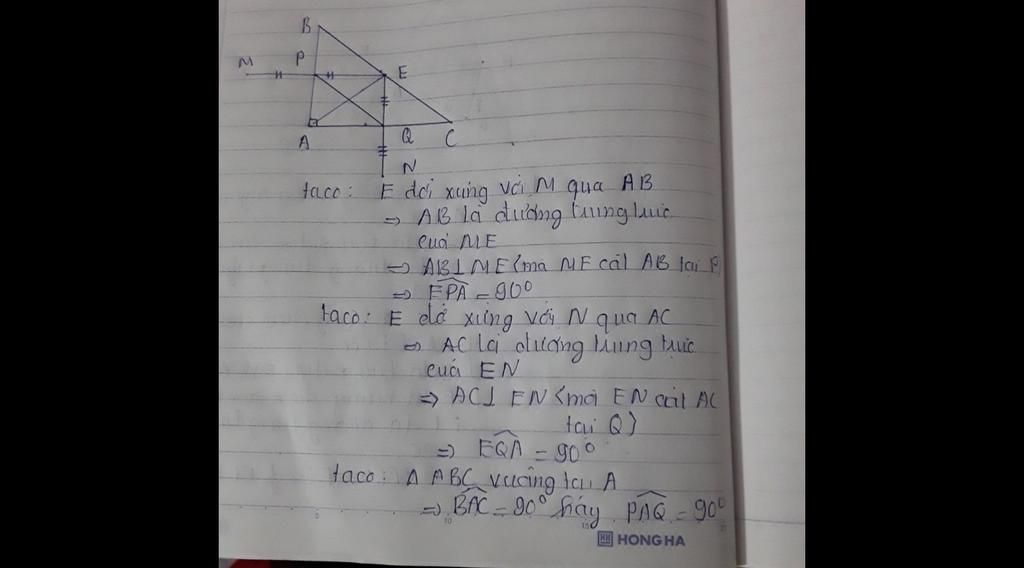 B
M P E
A Q C
N
taco: E đối xứng với M qua AB
=> AB là đường trung trực
của ME
=> AB⊥ME (mà ME cắt AB tại P
=> EPA = 90°
taco: E đố xứng với N qua AC
=> AC là đường trung trực
của EN
=> AC⊥ EN (mà EN cắt AC
tại Q)
=> EQA = 90°
taco: Δ ABC vuông tại A
=> BAC = 90° hay PAQ = 90°
HH HONG HA